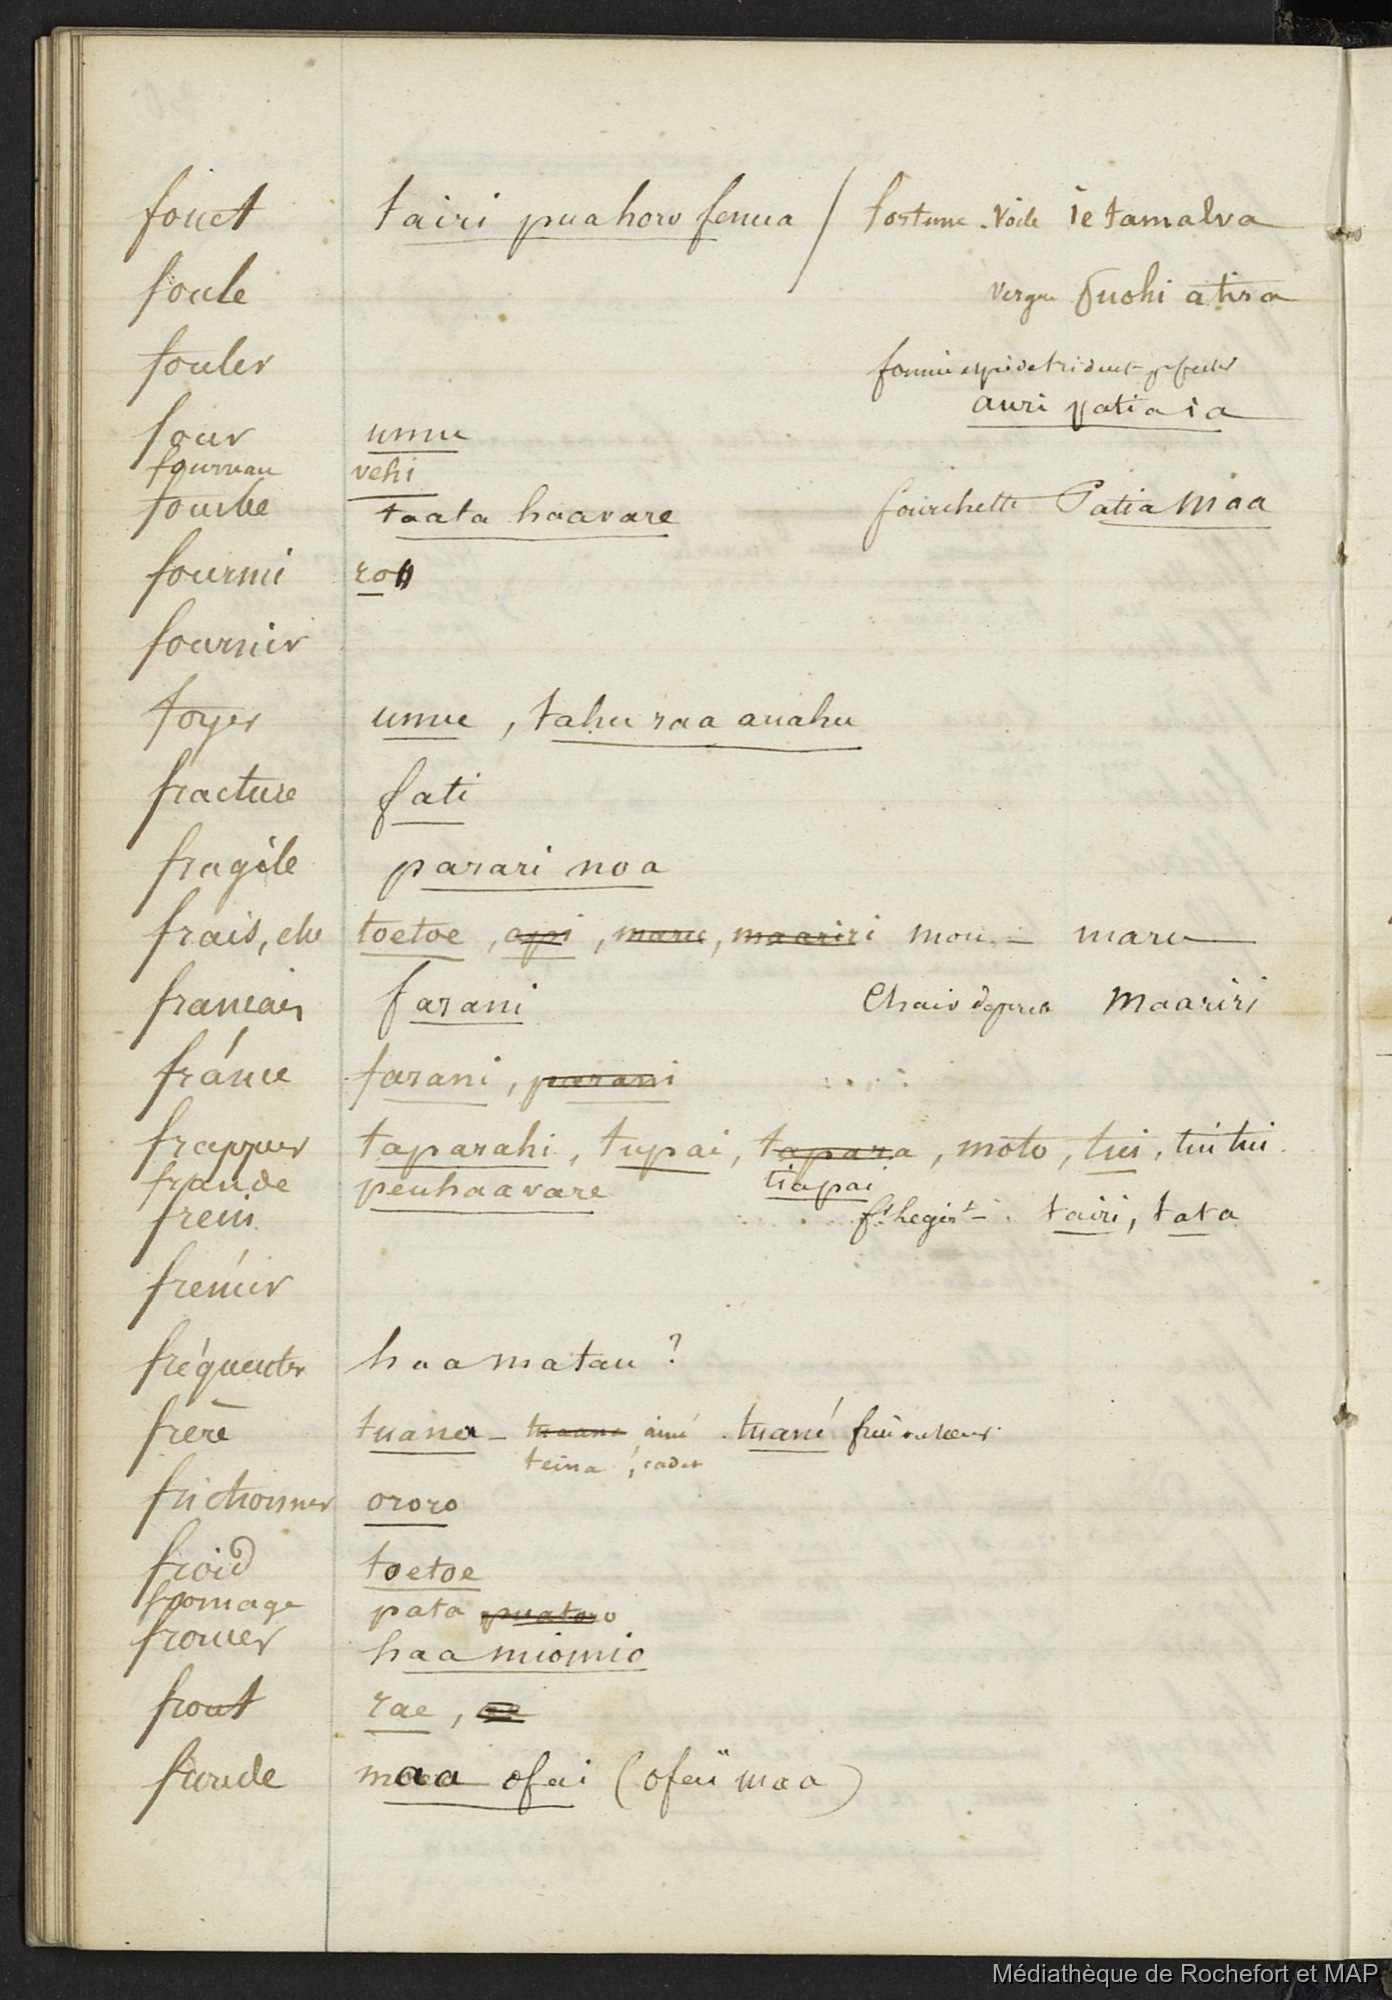 fouet tairi puahoro fenua / fortune . voile ie tamalva
foule vergue fuohi atira
fouler
auri patia ia
four umu
fourneau vehi
fourbe taata haavare fourchette Patia maa
fourmi ro
fournir
foyer umu , tahu raa auahu
fracture fati
fragile parari noa
frais, che toetoe , api , maru , maariri mou – maru
francais farani Chair Maariri
fránce farani , parani
frapper taparahi , tupai , tapara , moto , tui , tui tui .
fraude peuhaavare tiapai
frein tairi , tata
frémir
fréquenter haamatau ?
frère tuana – tuaana ainé . tuané frère
teina , cadet
frictionner ororo
froid toetoe
fromage pata puatoro
froncer haamiomio
front rae ,
fronde maa ofai ( ofaii maa )
Médiathèque de Rochefort et MAP